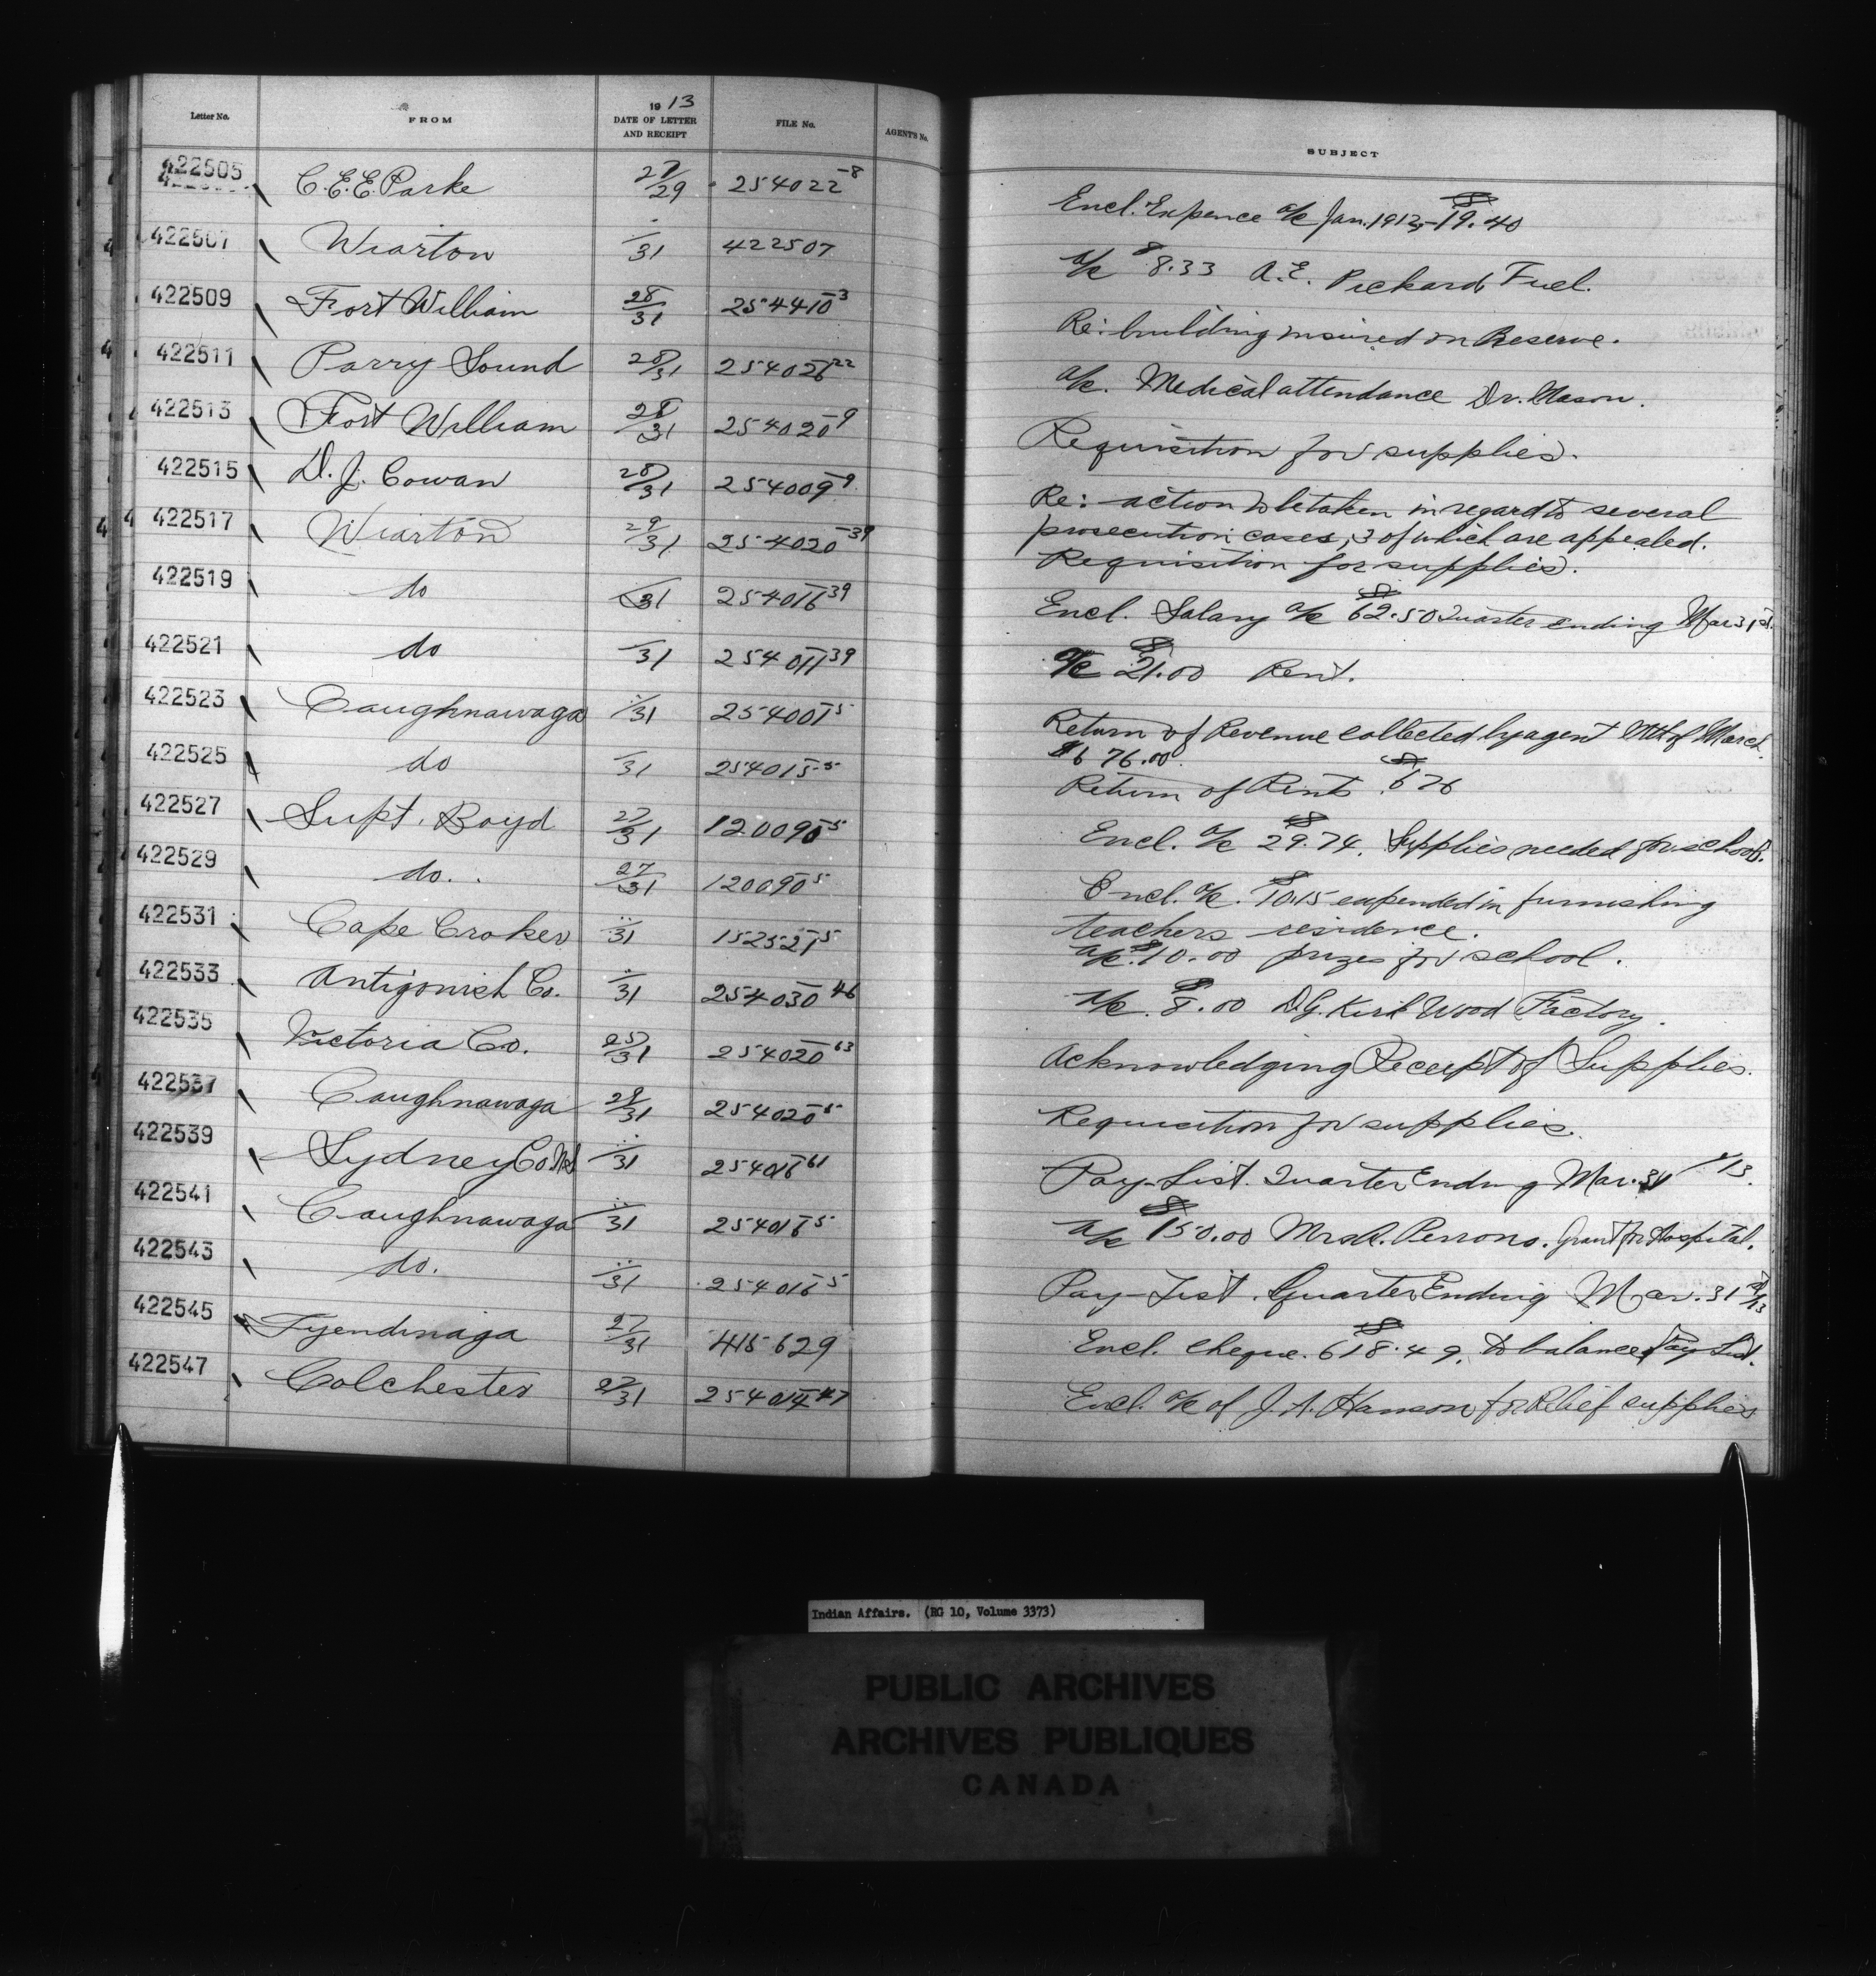 Letter No. FROM 1913 DATE OF LETTER AND RECEIPT FILE No. AGENT'S No. SUBJECT
422505 C.E.E. Parke 27/29 254022-8 Encl. Expence a/c Jan. 1913, $19.40
422507 Wiarton /31 422507 a/c $8.33 A.E. Pickard, Fuel.
422509 Fort William 28/31 254410-3 Re: building insured on Reserve.
422511 Parry Sound 28/31 254026-22 a/c. Medical attendance Dr. Mason.
422513 Fort William 28/31 254020-9 Requisition for supplies.
422515 D.J. Cowan 28/31 254009-9 Re: action to be taken in regard to several
prosecution cases, 3 of which are appealed.
422517 Wiarton 29/31 254020-39 Requisition for supplies.
422519 do /31 254016-39 Encl. Salary a/c $62.50 Quarter ending Mar 31st.
422521 do /31 254011-39 a/c $21.00 Rent.
422523 Caughnawaga "/31 254001-5 Return of Revenue collected by agent Mth of March
$676.00.
422525 do /31 254015-5 Return of Rents $676
422527 Supt. Boyd 27/31 120090-5 Encl. a/c $29.74. Supplies needed for school.
422529 do. 27/31 120090-5 Encl. a/c. $10.15 expended in furnishing
teachers residence.
422531 Cape Croker "/31 152521-5 a/c. $10.00 prizes for school.
422533 Antigonish Co. "/31 254030-46 a/c. $8.00 D.G. Kirk Wood Factory.
422535 Victoria Co. 25/31 254020-63 Acknowledging Receipt of Supplies.
422537 Caughnawaga 29/31 254020-5 Requisition for supplies.
422539 Sydney Co N.S "/31 254016-61 Pay-List. Quarter Ending Mar. 31 /13.
422541 Caughnawaga "/31 254016-5 a/c $150.00 Mrs. A. Perrons. Grant for Hospital.
422543 do. "/31 254016-5 Pay-List. Quarter Ending Mar. 31st/13
422545 Tyendinaga 27/31 415629 Encl. cheque. $618.49. to balance Pay List.
422547 Colchester 27/31 254014-47 Encl. a/c of J.A. Hanson for Relief supplies
Indian Affairs. (RG 10, Volume 3373)
PUBLIC ARCHIVES
ARCHIVES PUBLIQUES
CANADA